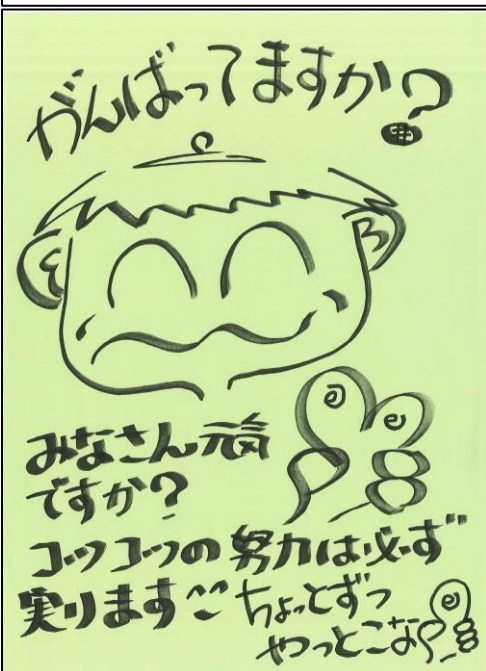 がんばってますか?
みなさん元気
ですか?
コツコツの努力は必ず
実ります^^ちょっとずつ
やっとこな